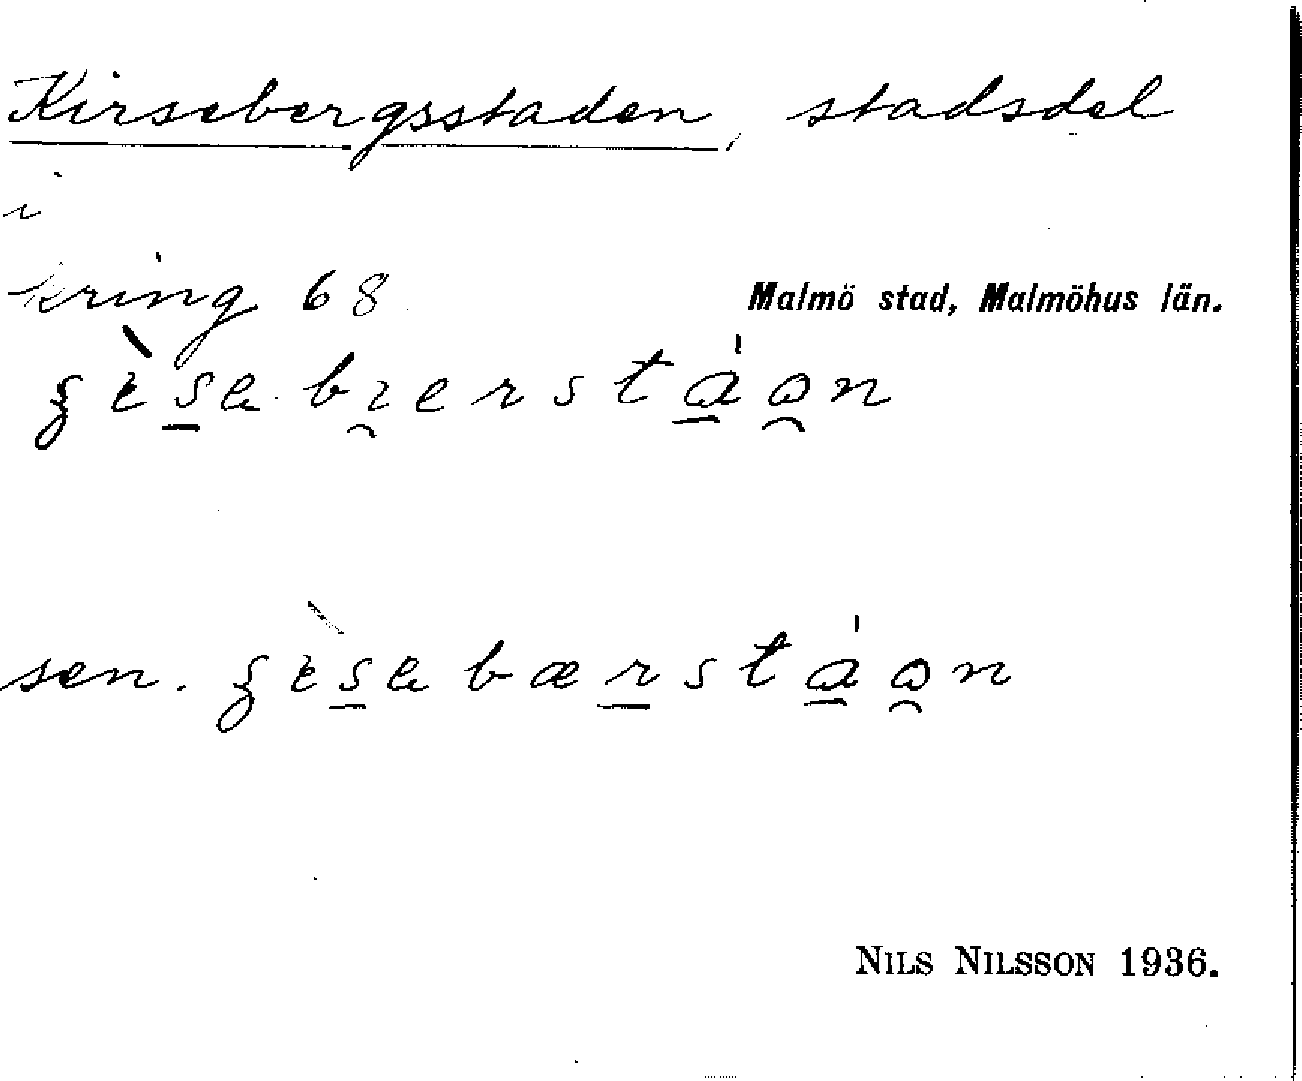 Kirsebergsstaden, stadsdel
i
kring 68 Malmö stad, Malmöhus län.
sen.
NILS NILSSON 1936.